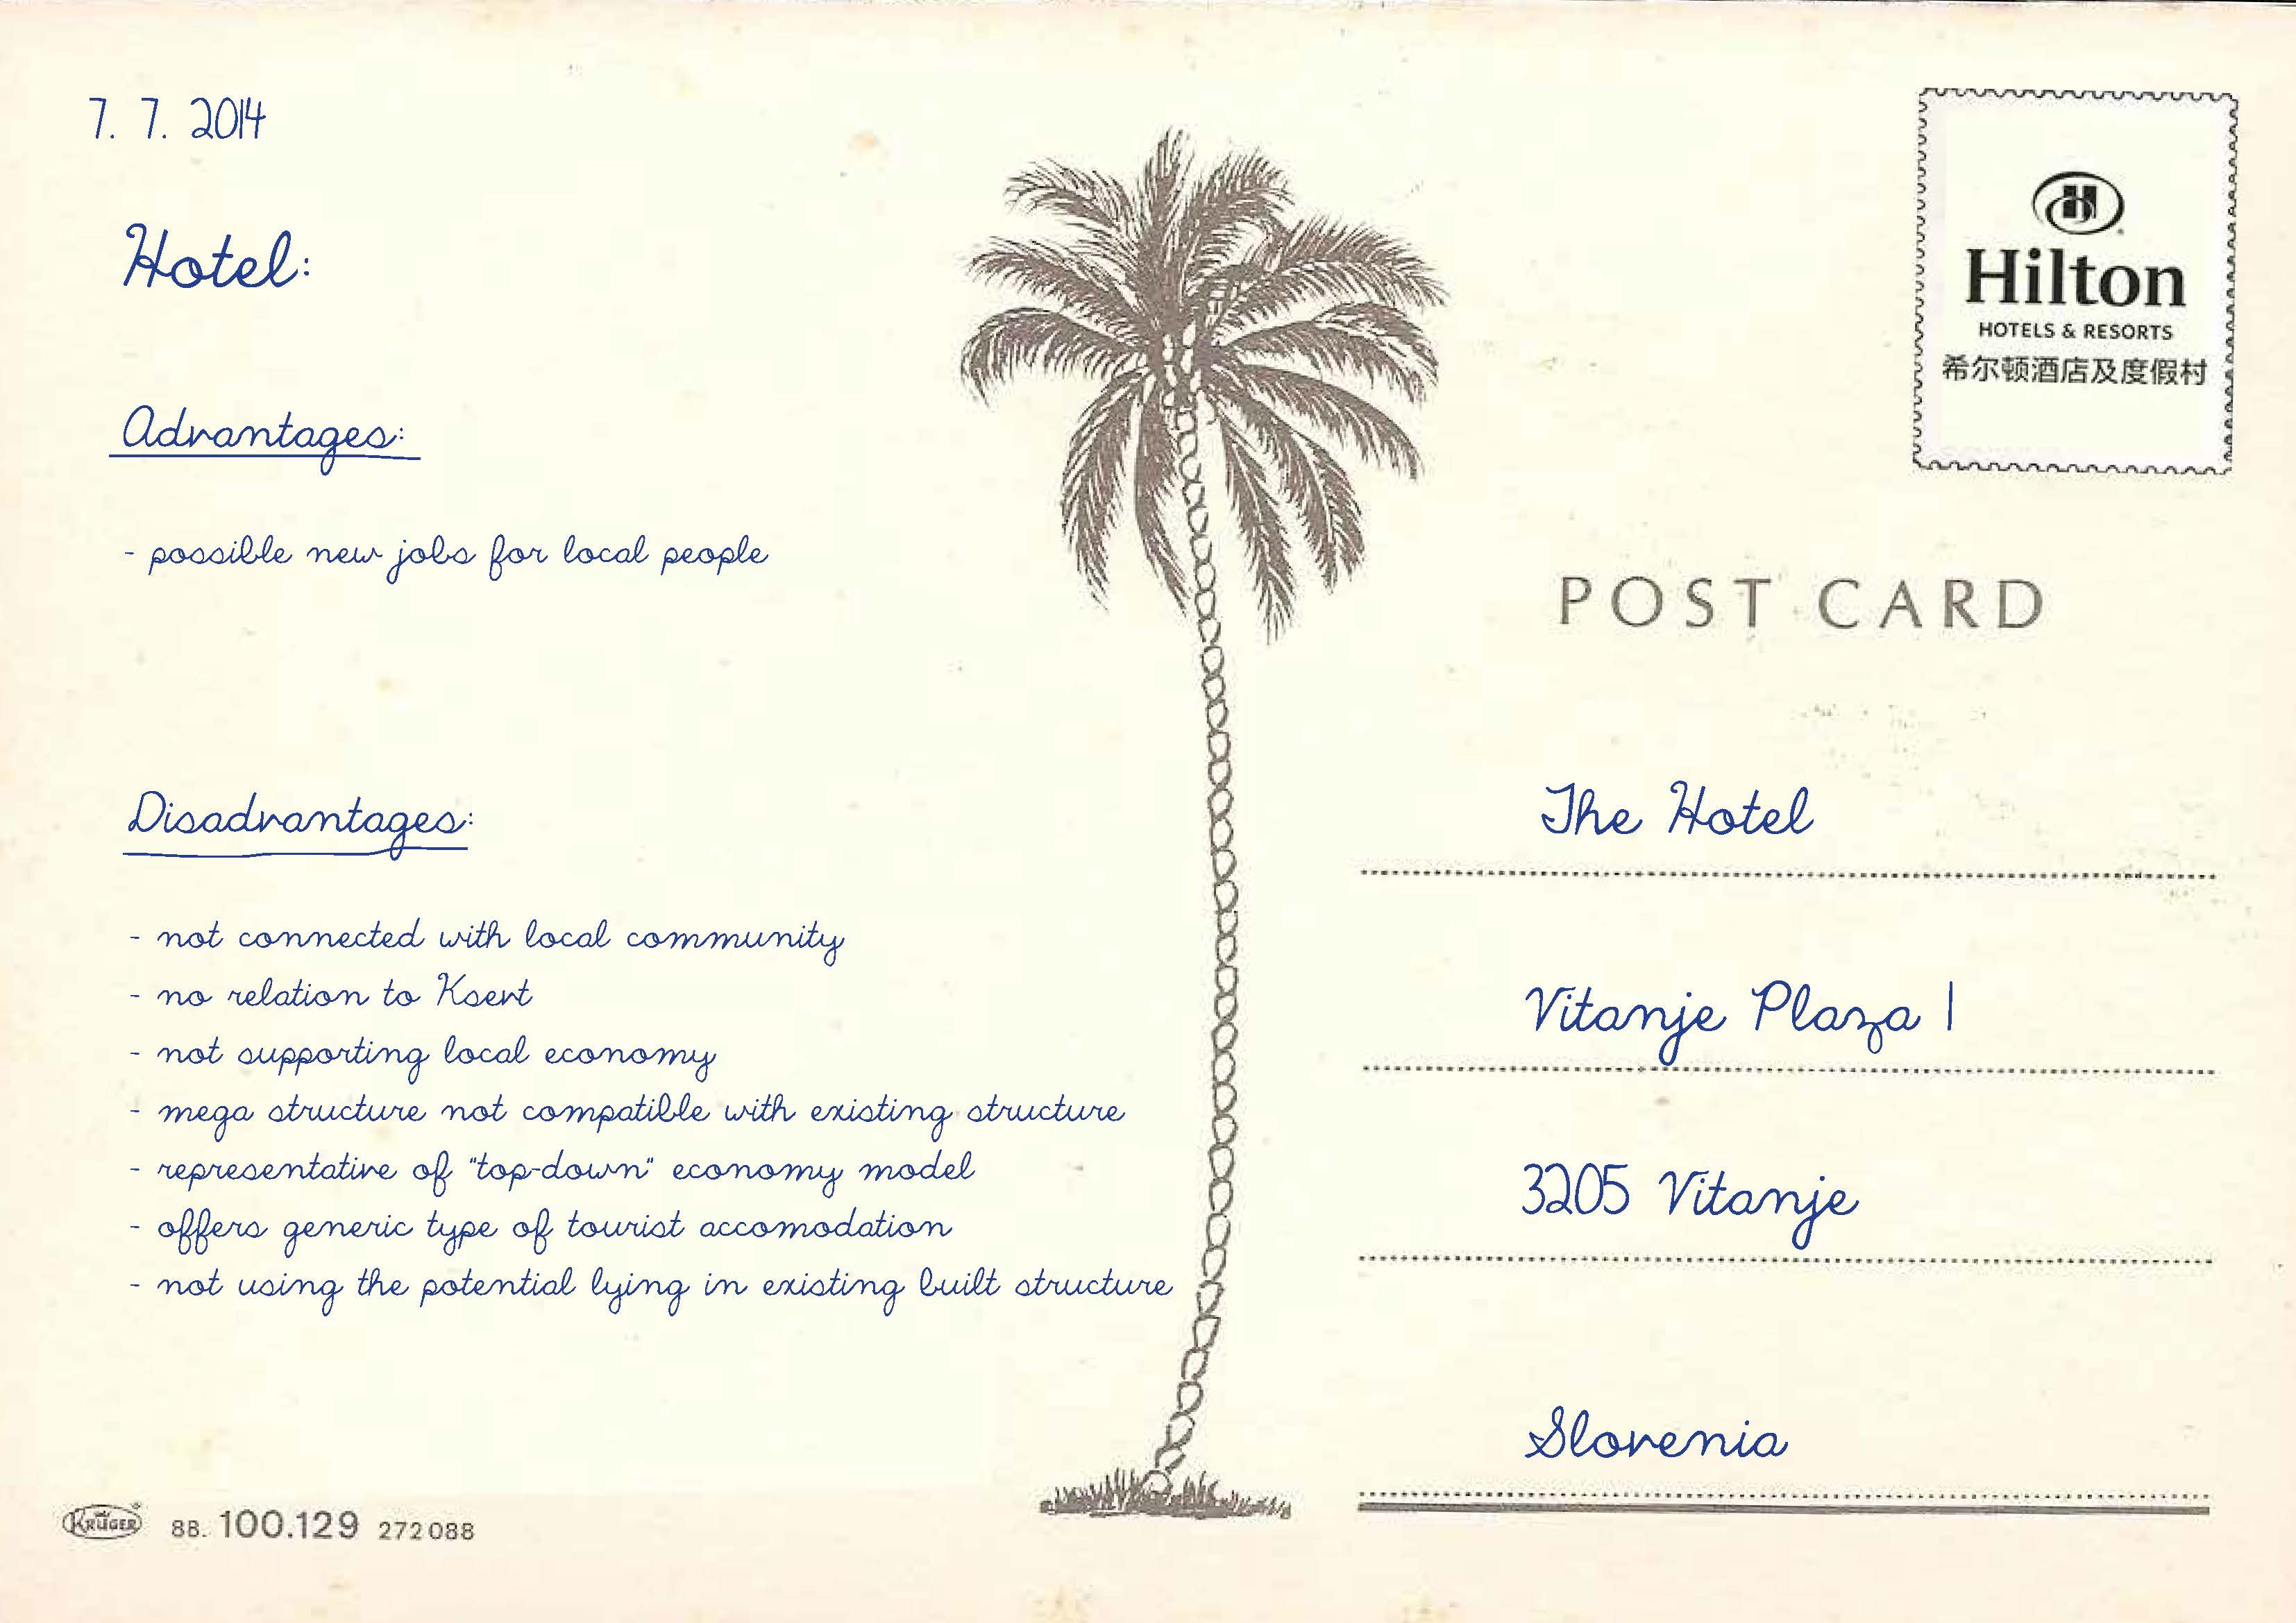 7. 7. 2014
Hotel:
Advantages:
- possible new jobs for local people
Disadvantages:
- not connected with local community
- no relation to Ksevt
- not supporting local economy
- mega structure not compatible with existing structure
- representative of "top-down" economy model
- offers generic type of tourist accomodation
- not using the potential lying in existing built structure
KRÜGER 88. 100.129 272088
Hilton
HOTELS & RESORTS
希尔顿酒店及度假村
POST CARD
The Hotel
Vitanje Plaza 1
3205 Vitanje
Slovenia